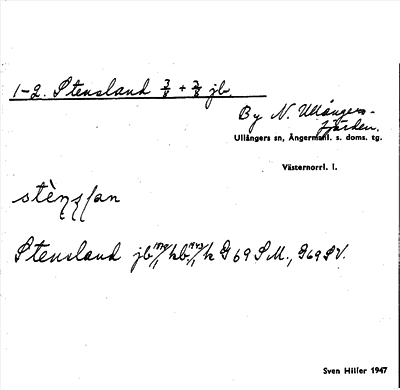 1-2. Stensland 3/8 + 3/8 jb.
By N. Ullångers-
fjärden.
Ullångers sn, Ångermanl. s. doms. tg.
Västernorrl. l.
Stensland jb hb k G 69 S M., G69 S V.
Sven Hiller 1947